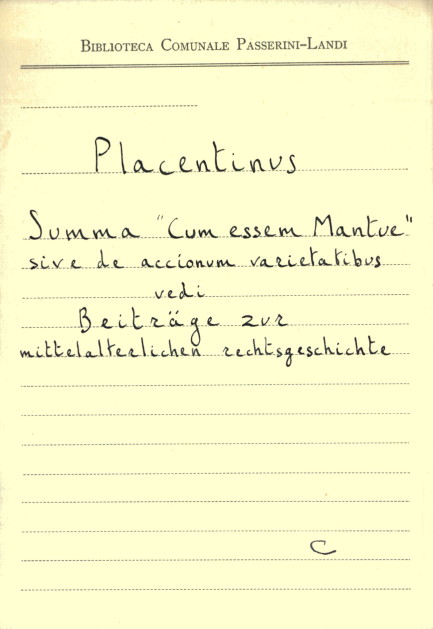 Biblioteca Comunale Passerini-Landi
Placentinus
Summa "Cum essem Mantue"
sive de accionum varietatibus
vedi
Beiträge zur
mittelalterlichen rechtsgeschichte
C